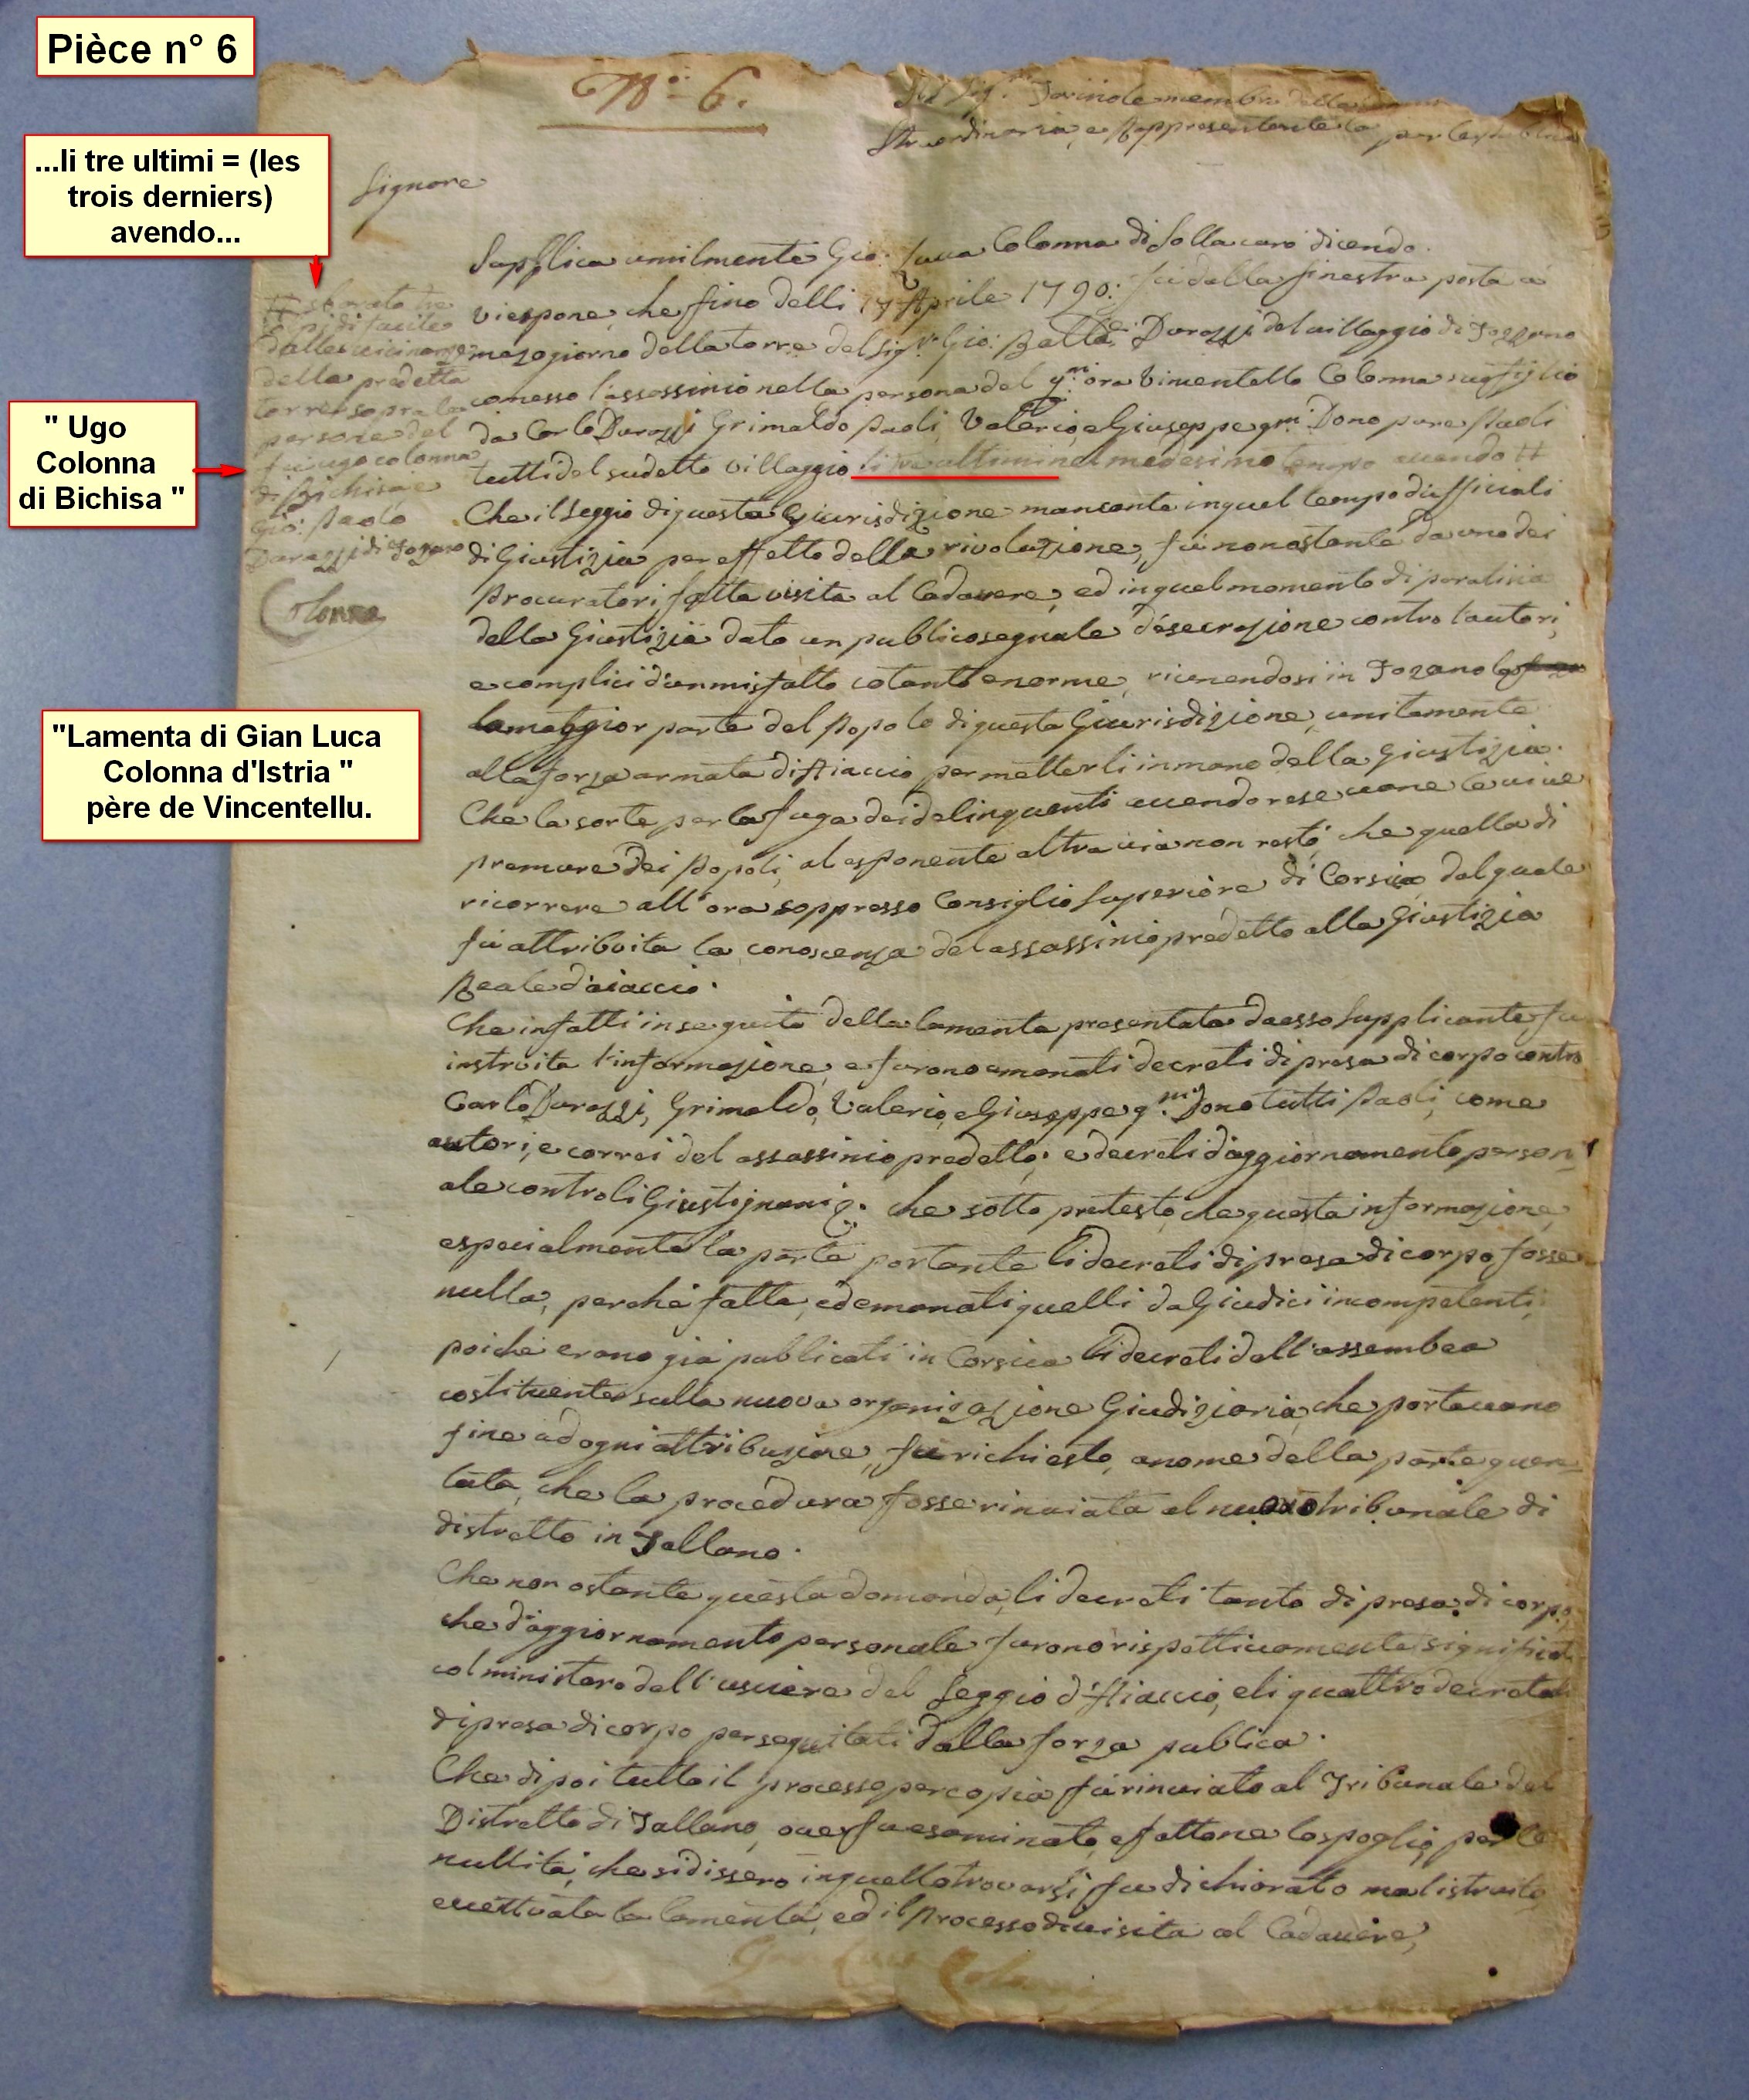 Pièce n° 6
N.° 6.
membro della
Straordinaria, e Rappresentante
...li tre ultimi = (les
trois derniers)
avendo...
Signore
Supplica umilmente Gio: Luca Colonna di Sollacarò dicendo.
vi espone, che fino delli Aprile 1790: fù dalla finestra posta a
mezogiorno della torre del Sig.r Gio: Batta Durazzi del villaggio di Fozzano
comesso l'assassinio nella persona del q.m ora Vincentello Colonna suo figlio
da Carlo Durazzi Grimaldo Paoli, Valerio, e Giuseppe q.m Dono pure Paoli
tutti del sudetto villaggio li tre ultimi nel medesimo tempo avendo #
# sparato tre
colpi di fucile
dalle vicinanze
della predetta
torre sopra la
persona del
fù ugo colonna
di Bichisa e
Gio: Paolo
Durazzi di Fozzano
Colonna
" Ugo
Colonna
di Bichisa "
"Lamenta di Gian Luca
Colonna d'Istria "
père de Vincentellu.
Che il Seggio di questa Giurisdizione mancante in quel tempo d'ufficiali
di Giustizia per effetto della rivoluzione, fù nonostante da uno dei
Procuratori fatta visita al Cadavere, ed in quel momento di paralisia
della Giustizia dato un publico segnale d'esecrazione contro l'autori,
e complici d'un misfatto cotanto enorme, riunendosi in Fozano
la maggior parte del Popolo di questa Giurisdizione, unitamente
alla forza armata d'Aiaccio per metterli in mano della Giustizia.
Che la sorte per la fuga dei delinquenti avendo rese vane le vive
premure dei Popoli, al esponente altra via non restò, che quella di
ricorrere all'ora soppresso Consiglio Superiore di Corsica dal quale
fù attribuita la conoscenza del assassinio predetto alla Giustizia
Reale d'aiaccio.
Che infatti in seguito della lamenta presentata da esso Supplicante fu
instruita l'informazione, e furono emanati decreti di presa di corpo contro
Carlo Durazzi, Grimaldo, Valerio, e Giuseppe q.m Dono tutti Paoli, come
autori, e correi del assassinio predetto; e decreti d'aggiornamento person
ale contro li Giustignani. che sotto pretesto, che questa informazione,
especialmente la parte portante li decreti di presa di corpo fosse
nulla, perchè fatta, ed emanati quelli da Giudici incompetenti,
poichè erano già publicati in Corsica li decreti dell'assembea
costituente sulla nuova organizazione Giudiziaria, che portavano
fine ad ogni attribuzione, fù richiesto, a nome della parte quere
lata, che la procedura fosse rinviata al nuovo tribunale di
distretto in Tallano.
Che non ostante questa domanda, li decreti tanto di presa di corpo,
che d'aggiornamento personale furono rispettivamente significati
col ministero dell'usciere del Seggio d'Aiaccio, e li quattro decretati
di presa di corpo perseguitati dalla forza publica.
Che di poi tutto il processo per copia fù rinviato al Tribunale del
Distretto di Tallano, ove fu esaminato, e fattone lo spoglio, per le
nullità, che si dissero in quello trovarsi fu dichiarato mal istruito
eccettuata la lamenta, ed il Processo di visita al Cadavere,
Gian Luca Colonna